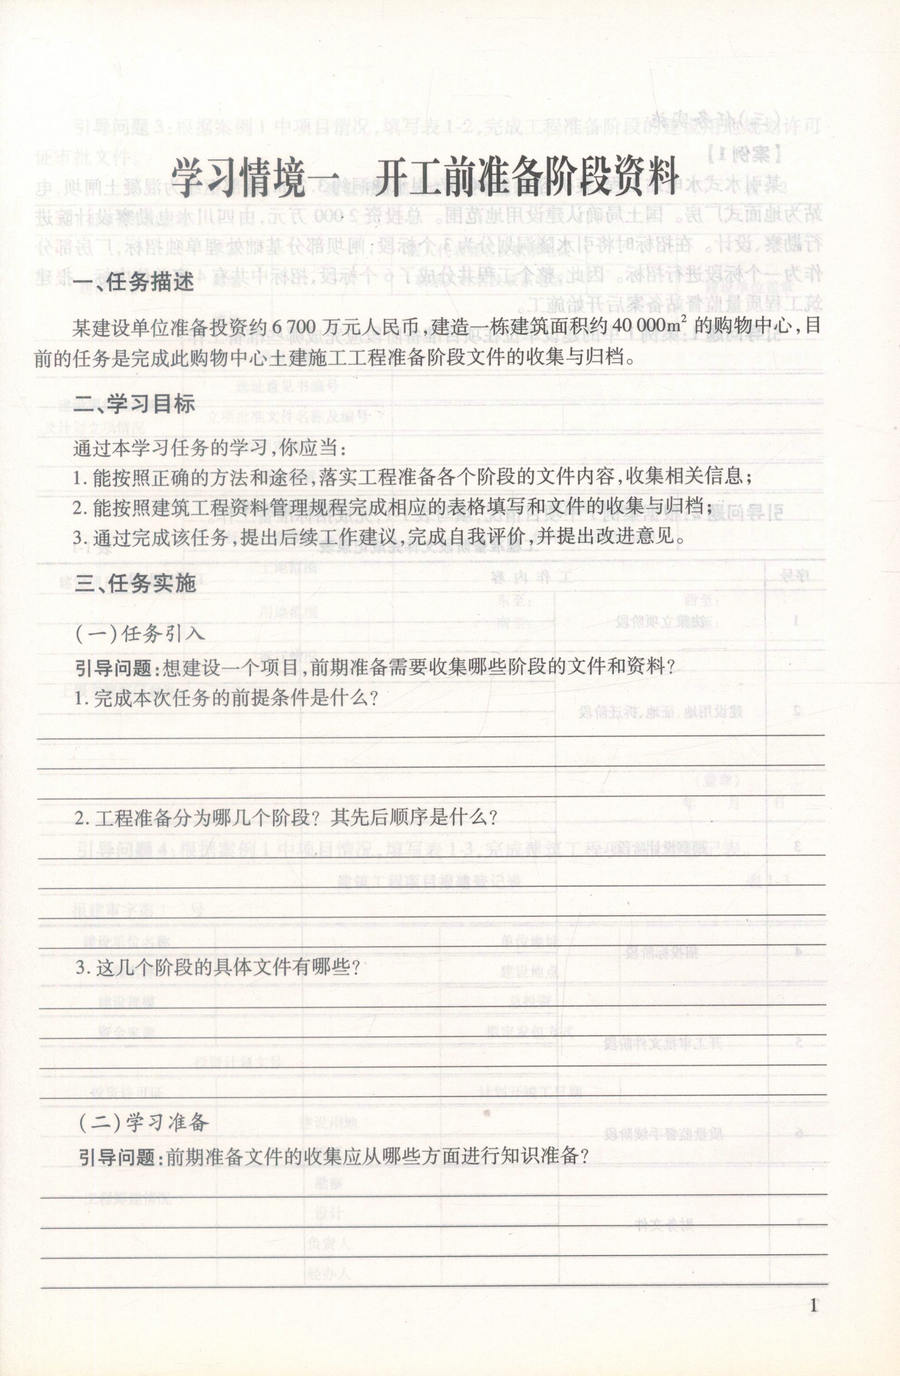 学习情境一 开工前准备阶段资料
一、任务描述
某建设单位准备投资约 6 700 万元人民币,建造一栋建筑面积约 40 000m² 的购物中心,目
前的任务是完成此购物中心土建施工工程准备阶段文件的收集与归档。
二、学习目标
通过本学习任务的学习,你应当:
1. 能按照正确的方法和途径,落实工程准备各个阶段的文件内容,收集相关信息;
2. 能按照建筑工程资料管理规程完成相应的表格填写和文件的收集与归档;
3. 通过完成该任务,提出后续工作建议,完成自我评价,并提出改进意见。
三、任务实施
(一)任务引入
引导问题:想建设一个项目,前期准备需要收集哪些阶段的文件和资料?
1. 完成本次任务的前提条件是什么?
2. 工程准备分为哪几个阶段? 其先后顺序是什么?
3. 这几个阶段的具体文件有哪些?
(二)学习准备
引导问题:前期准备文件的收集应从哪些方面进行知识准备?
1